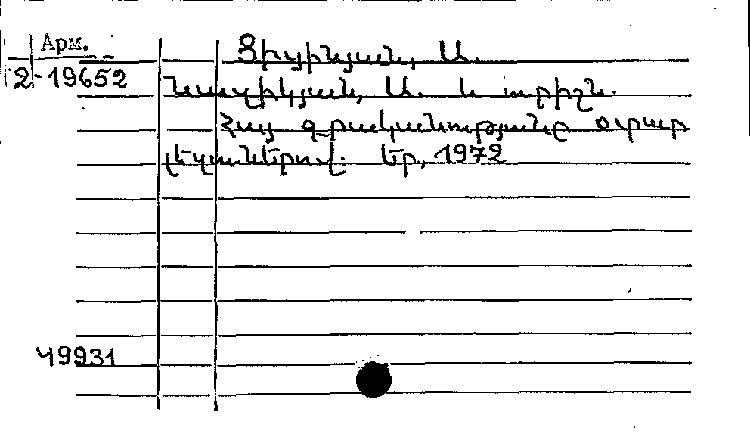 Арм.
2-19652
Ցիցինյան, Ա.
Նազիկյան, Ա. և ուրիշն.
Հայ գրականությունը օտար
լեզուներով. Եր., 1972
49931